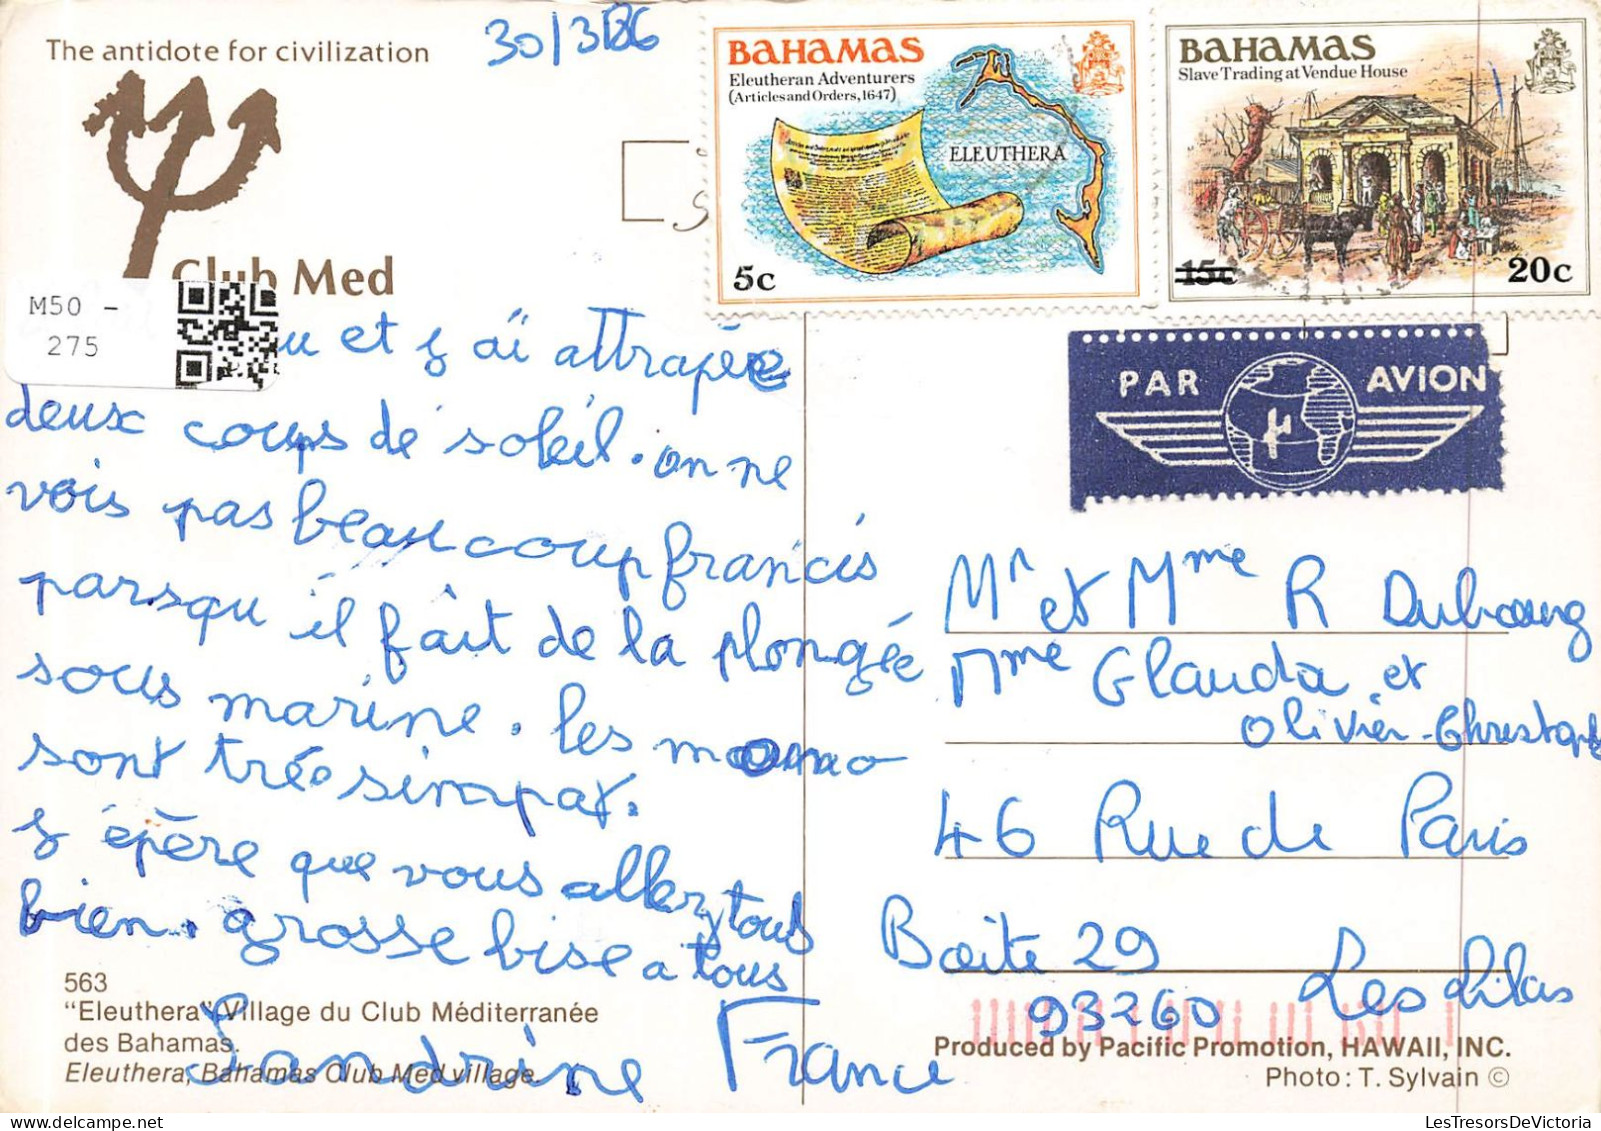 The antidote for civilization
30/3/86
Club Med
M50 -
275
BAHAMAS
Eleutheran Adventurers
(Articles and Orders, 1647)
ELEUTHERA
5c
BAHAMAS
Slave Trading at Vendue House
15c
20c
PAR AVION
et j'ai attrapée
deux coups de soleil. on ne
vois pas beaucoup francis
parsqu il fait de la plongée
sous marine. les
sont très simpat.
j épère que vous allez tous
bien. grosse bise a tous
Sandrine
Mr et Mme R Dubourg
Mme Glauda et
Olivier-Christophe
46 Rue de Paris
Boite 29
93260 Les Lilas
France
563
"Eleuthera" Village du Club Méditerranée
des Bahamas.
Eleuthera, Bahamas Club Med village.
Produced by Pacific Promotion, HAWAII, INC.
Photo: T. Sylvain ©
LesTresorsDeVictoria